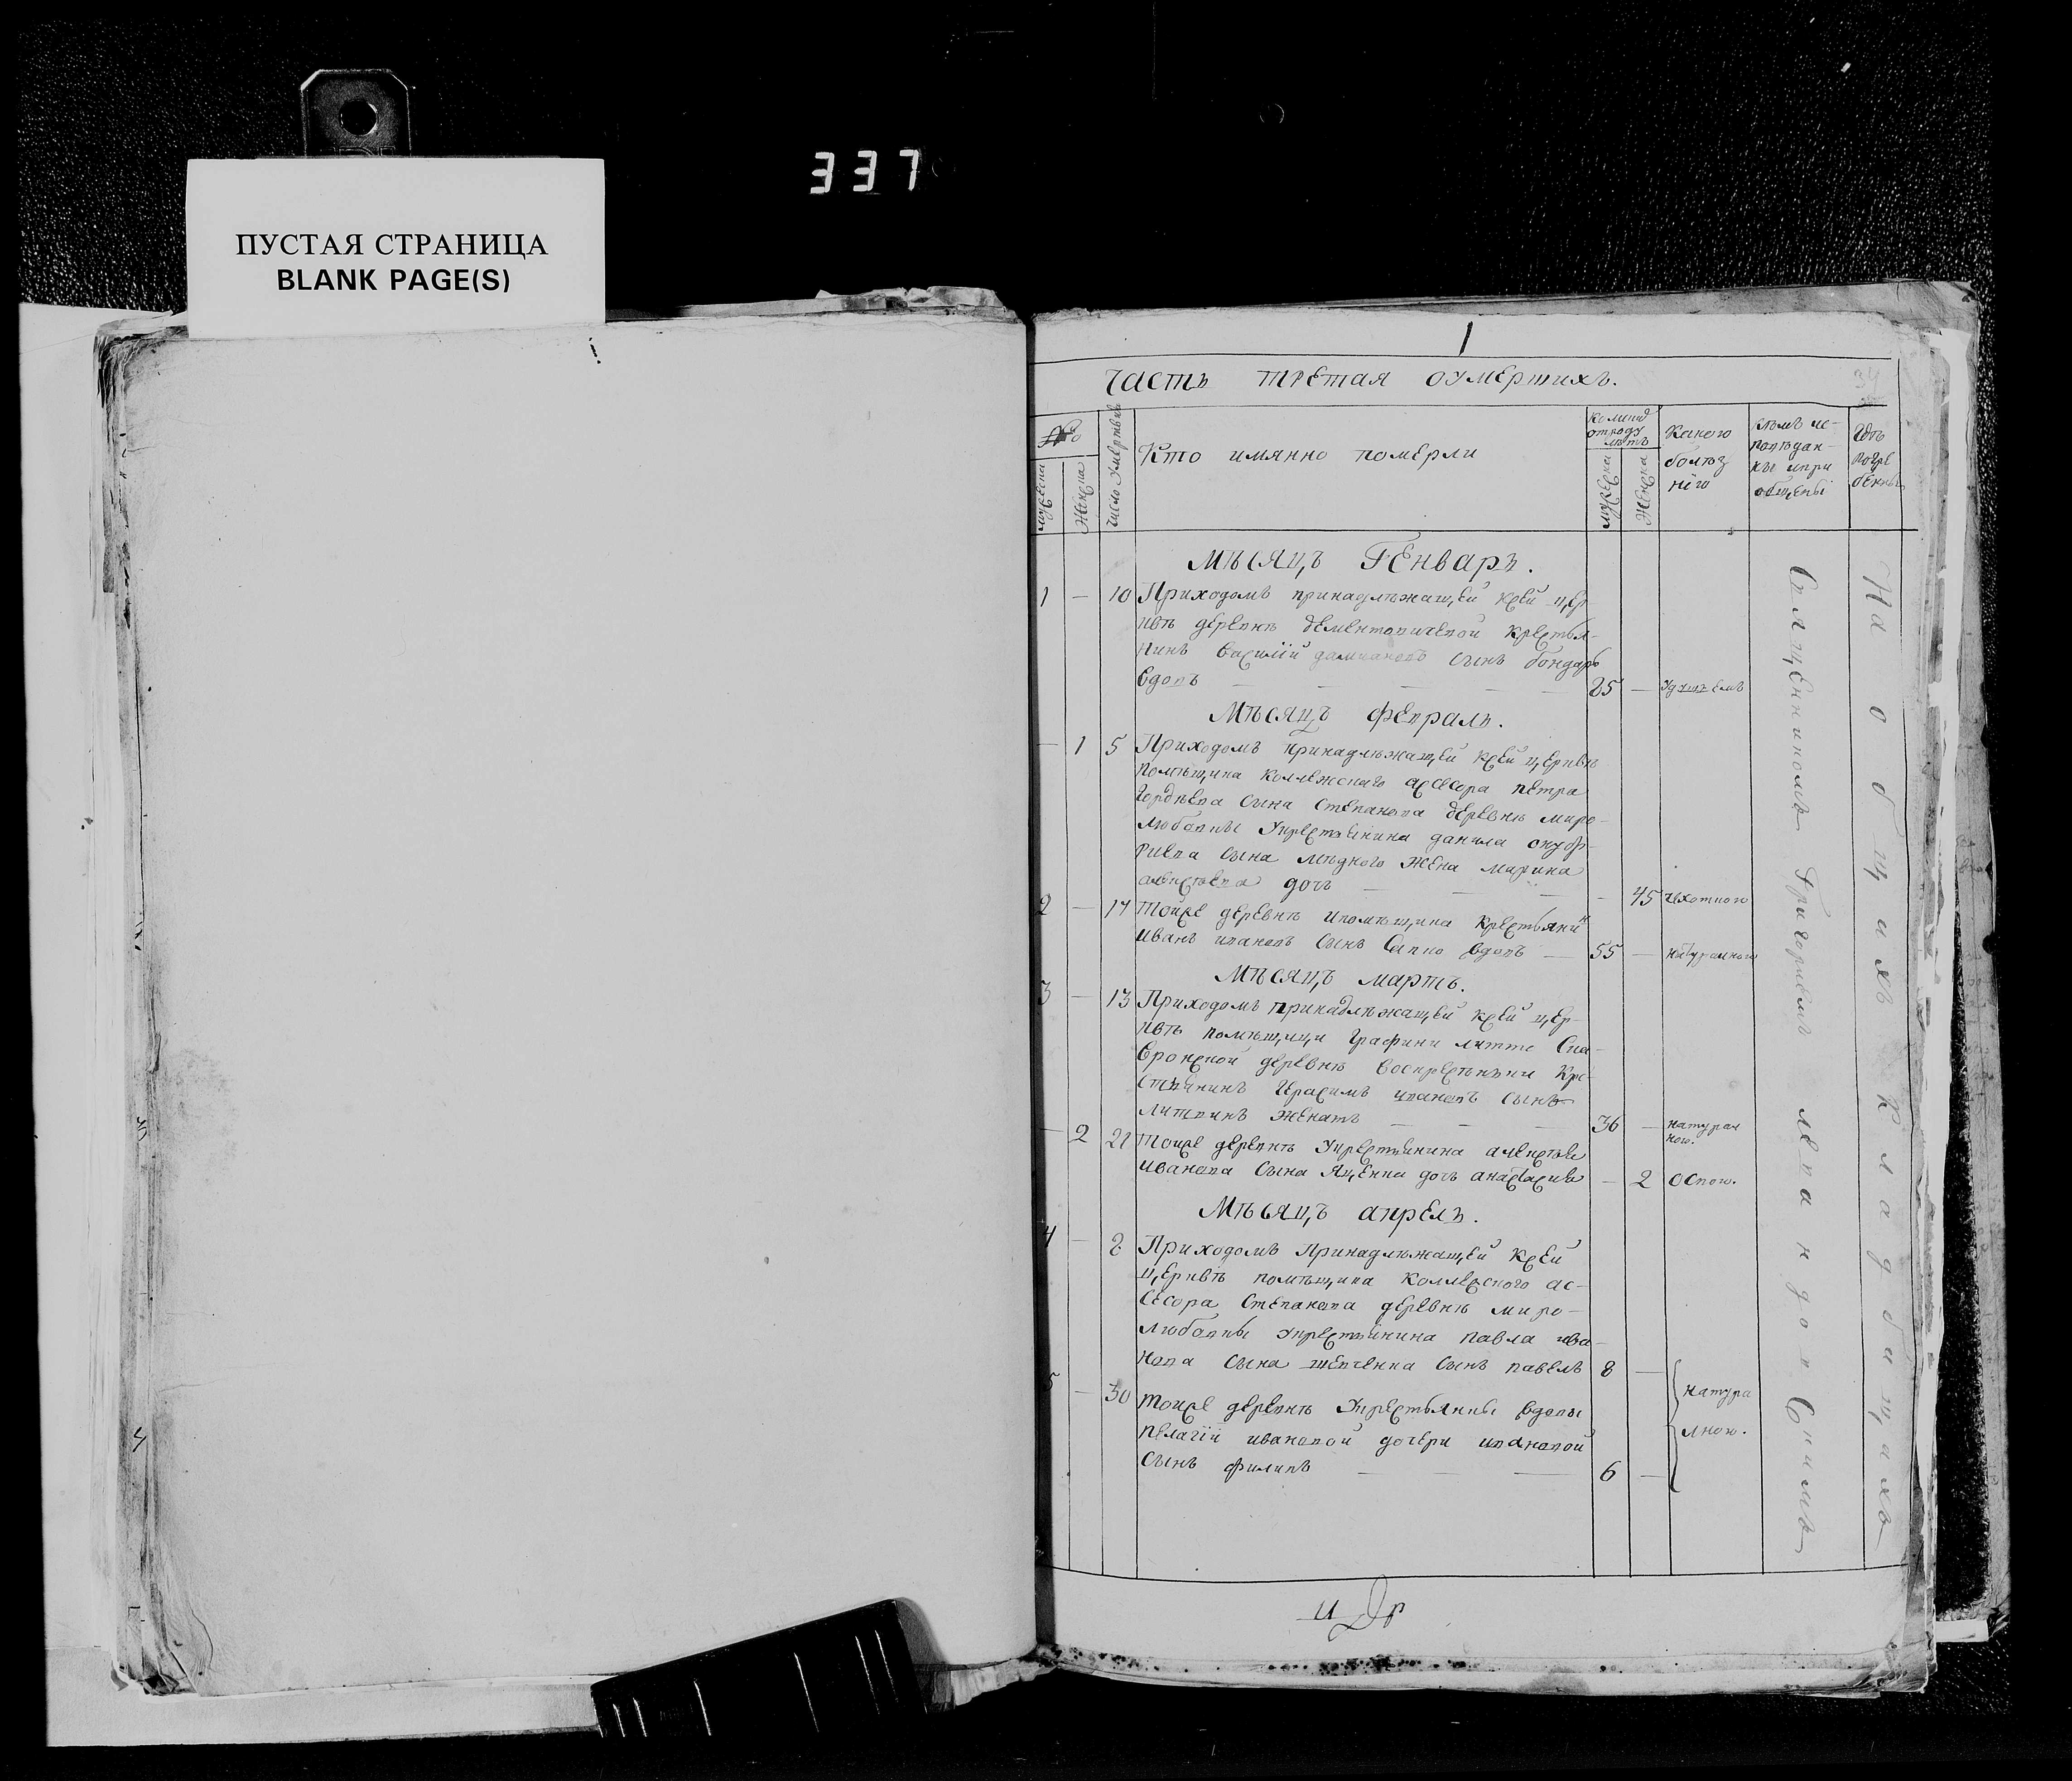 337
ПУСТАЯ СТРАНИЦА
BLANK PAGE(S)
1
Часть третая оумершихъ.
№
мужеска
Женска
Число умертвія
Кто имянно померли
отроду
лѣтъ
мужеска
Женска
Какого
болѣз
нію
кѣмъ ис-
повѣдан-
ны ипри
общены
Гдѣ
погре
бенны
Мѣсяцъ Генварь.
1 — 10 Приходомъ принадлѣжащей ксей цер
квѣ деревнѣ Дементовичевой крестья-
нинъ Василій дамиановъ сынъ бондарь
вдовъ — 85 — удушьемъ
Мѣсяцъ февраль.
— 1 5 Приходомъ принадлѣжащей ксей церквѣ
помѣщика коллежскаго ассесора петра
Гордѣева сына Степанова деревнѣ миро-
любовки укрестьянина данила онуф-
риева сына мѣдного жена марина
алексѣева дочь — — 45 чехоткою
2 — 17 тойже деревнѣ ипомѣщика крестьянинъ
иванъ ивановъ сынъ Сапко вдовъ — 55 — натуралною
Мѣсяцъ мартъ.
3 — 13 Приходомъ принадлѣжащей ксей цер-
квѣ помѣщици Графини литте Ска-
вронской деревнѣ воскресѣнки кре-
стьянинъ Герасимъ ивановъ сынъ
литвинъ женатъ — 36 — натурал
ною.
— 2 21 тойже деревнѣ укрестьянина алексѣя
иванова сына Яценка дочь анастасия — 2 оспою.
Мѣсяцъ апрель.
4 — 2 Приходомъ принадлѣжащей ксей
церквѣ помѣщика коллежского ас-
сесора Степанова деревнѣ миро-
любовки укрестьянина павла ива-
нова сына шевченка сынъ павелъ 8 —
натура
лною.
5 — 30 тойже деревнѣ укрестьянки вдовы
пелагіи ивановой дочери ивановой
сынъ филипъ — 6 —
Священникомъ Григориемъ
На общихъ кладбищахъ